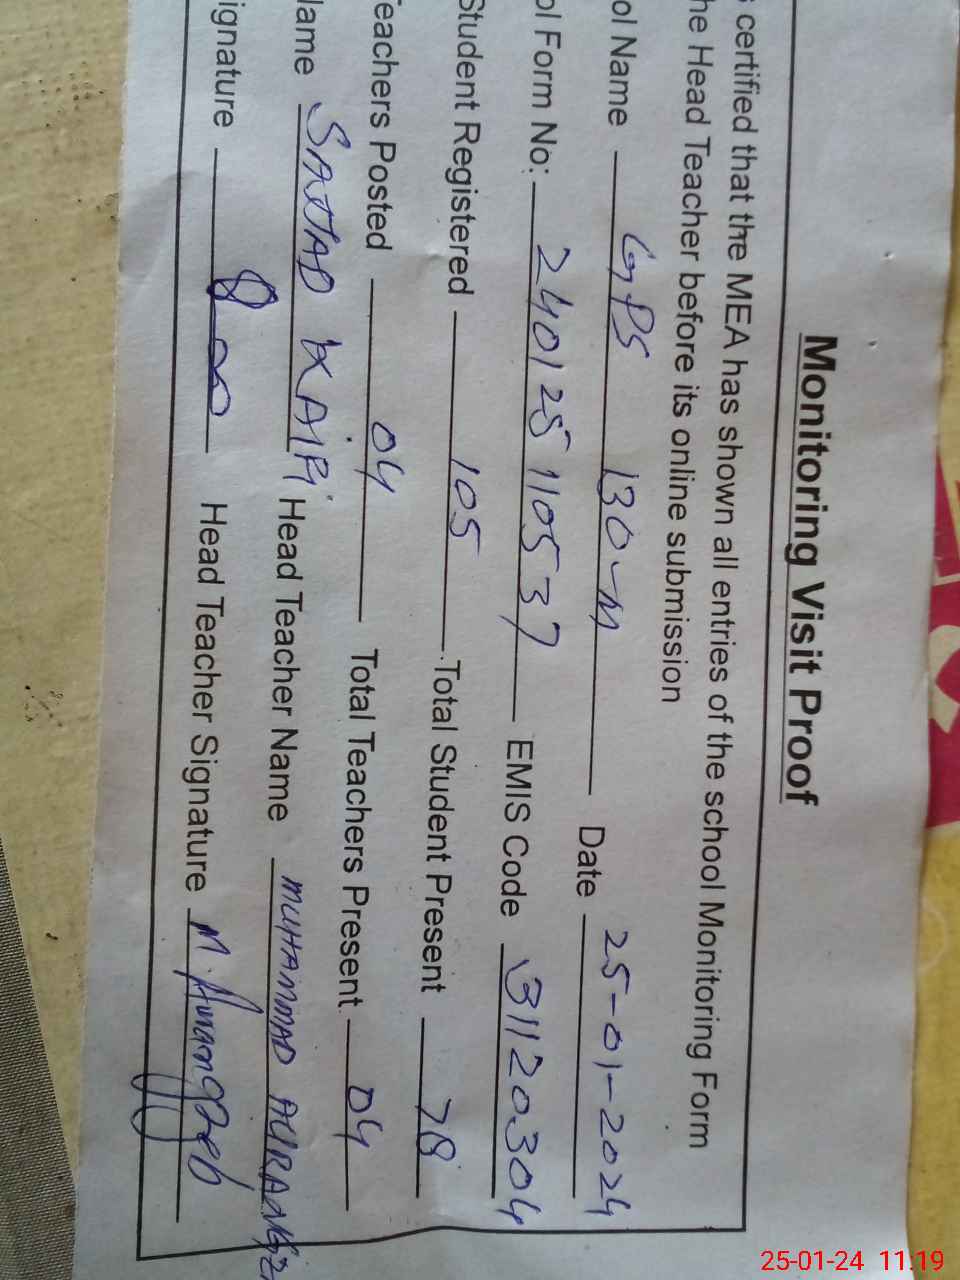 Monitoring Visit Proof
certified that the MEA has shown all entries of the school Monitoring Form
he Head Teacher before its online submission
ol Name GPS 130-M Date 25-01-2024
ol Form No: 24012511 0537 EMIS Code 31120304
Student Registered 105 Total Student Present 78
eachers Posted 04 Total Teachers Present 04
lame SAJJAD Head Teacher Name MUHAMMAD
ignature Head Teacher Signature M Aurangzeb
25-01-24 11:19